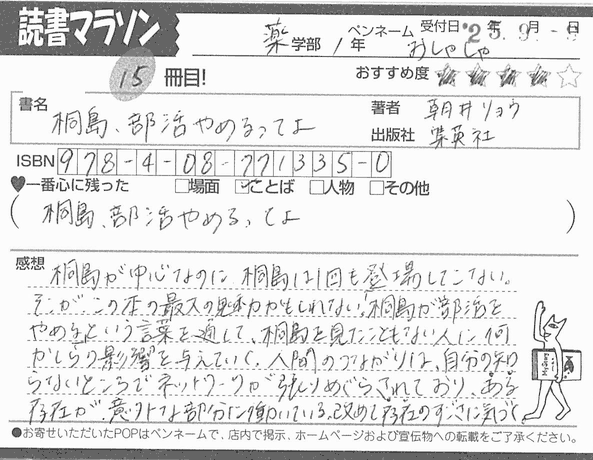 読書マラソン
薬学部 1年 ペンネーム おしゃしゃ 受付日 '25.9.-9
15冊目! おすすめ度 ★★★★☆
書名 桐島、部活やめるってよ
著者 朝井リョウ
出版社 集英社
ISBN 978-4-08-771335-0
♥一番心に残った □場面 ☑ことば □人物 □その他
(桐島、部活やめるってよ)
感想 桐島が中心なのに桐島は1回も登場してこない。
そこがこの本の最大の魅力かもしれない。桐島が部活を
やめるという言葉を通して、桐島を見たこともない人に何
かしらの影響を与えていく。人間のつながりは、自分の知
らないところでネットワークが張りめぐらされており、ある
存在が、意外な部分に働いている。改めて存在のすごさに気づく。
●お寄せいただいたPOPはペンネームで、店内で掲示、ホームページおよび宣伝物への転載をご了承ください。